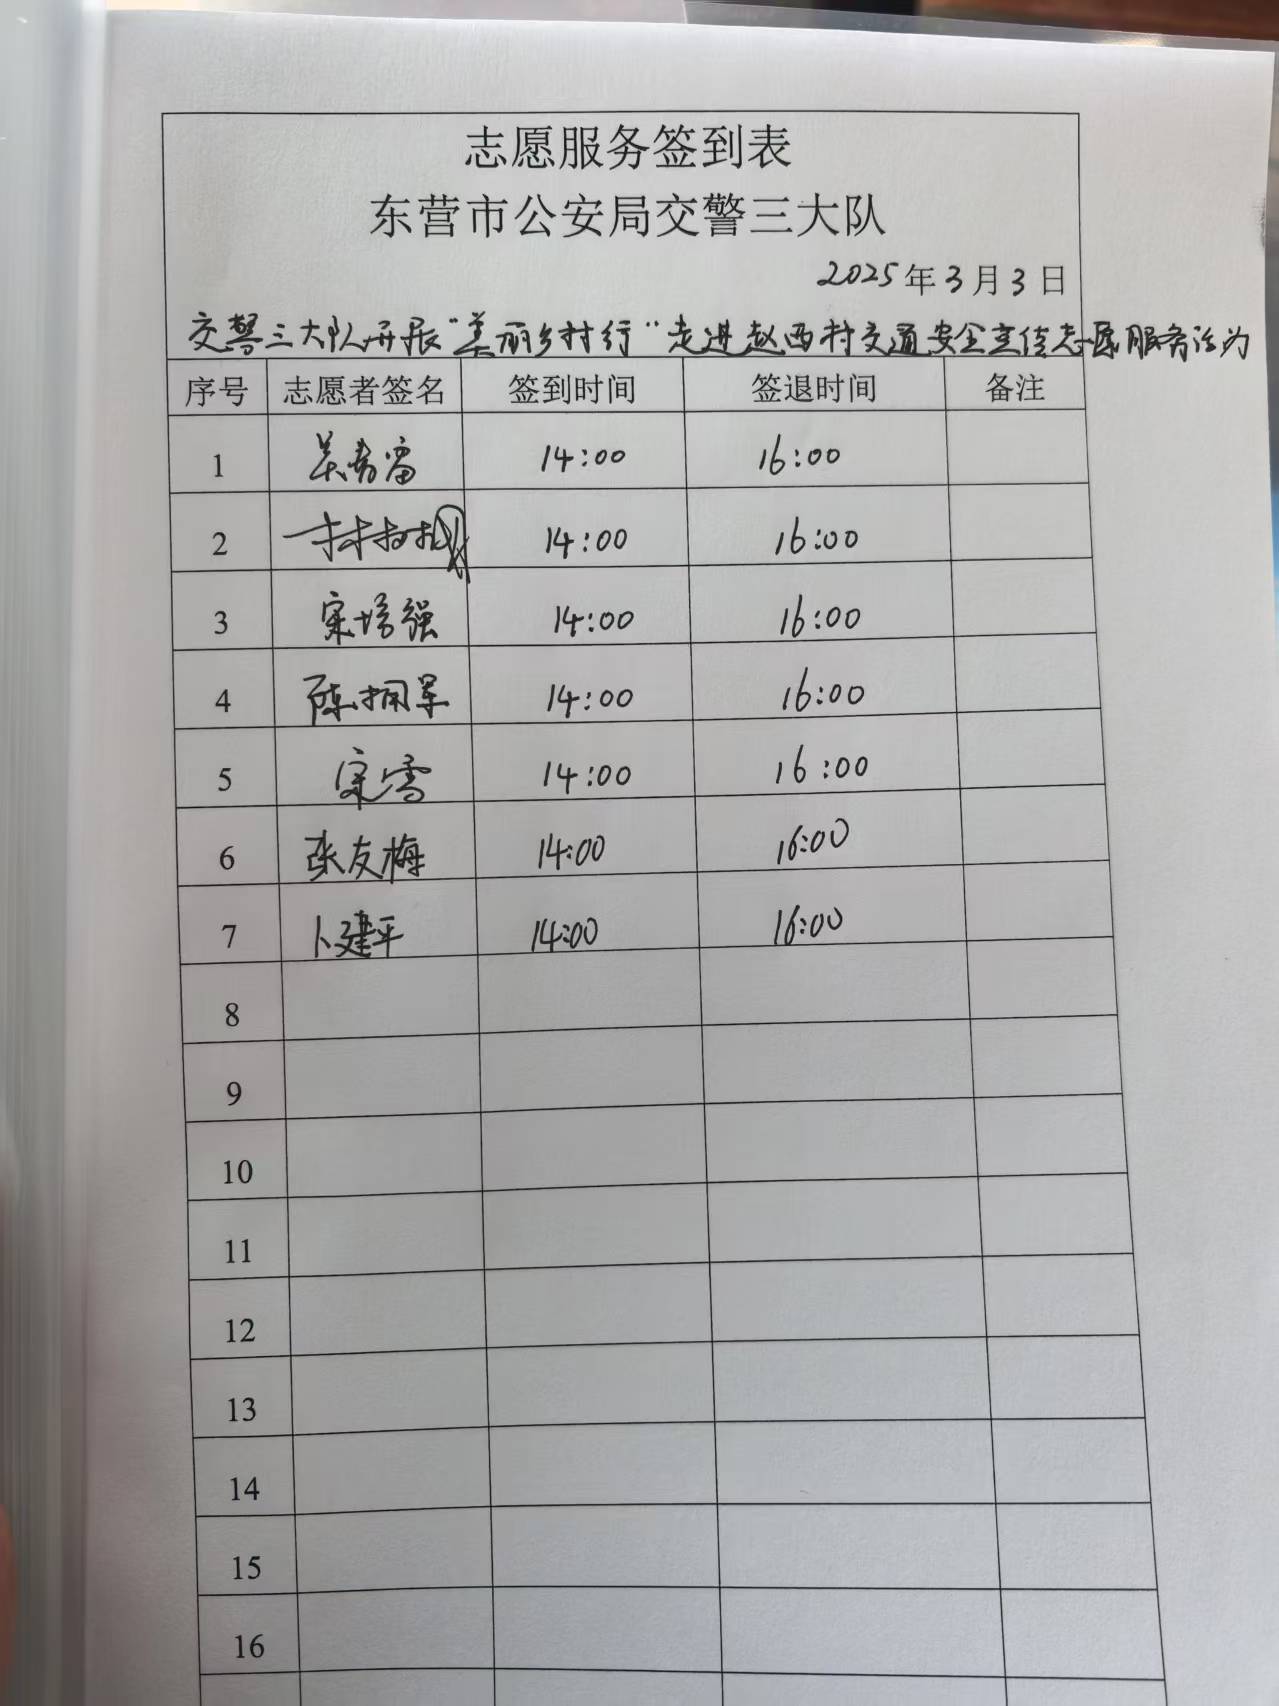 志愿服务签到表
东营市公安局交警三大队
2025年3月3日
交警三大队开展“美丽乡村行”走进赵西村交通安全宣传志愿服务活动
序号 志愿者签名 签到时间 签退时间 备注
1 吴青雷 14:00 16:00
2 14:00 16:00
3 宋培强 14:00 16:00
4 陈拥军 14:00 16:00
5 宋雪 14:00 16:00
6 张友梅 14:00 16:00
7 卜建平 14:00 16:00
8
9
10
11
12
13
14
15
16